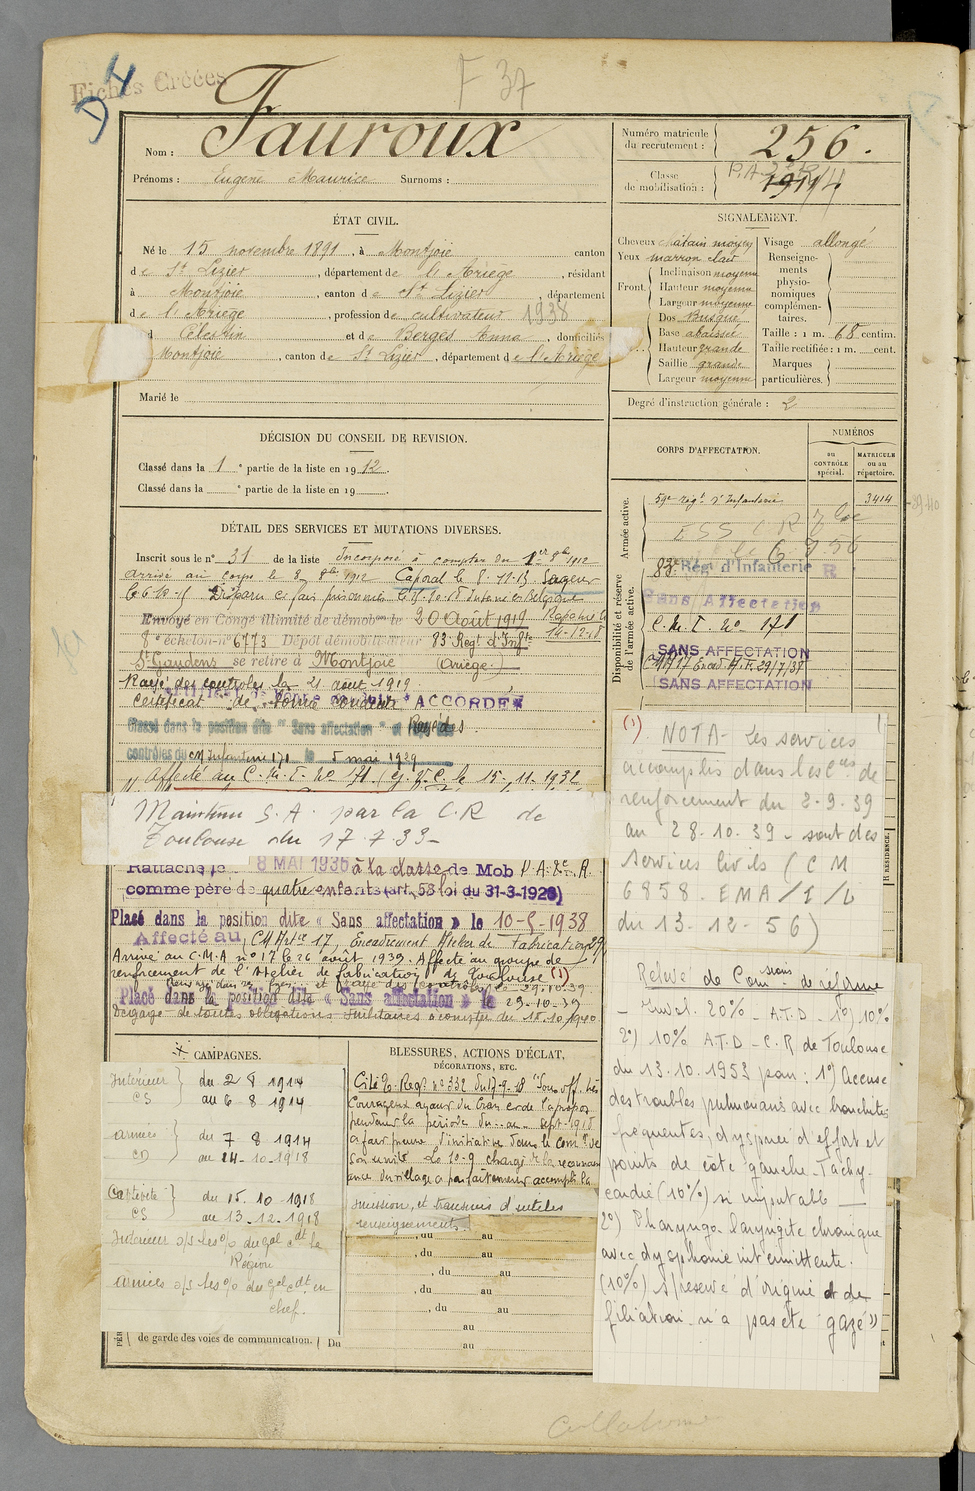 Fiches Créées
D4
F 37
Nom : Fauroux
Prénoms : Eugène Maurice Surnoms :
Numéro matricule du recrutement : 256.
Classe de mobilisation : 1914
ÉTAT CIVIL.
Né le 15 novembre 1891, à Montjoie canton
de St Lizier, département de l'Ariège, résidant
à Montjoie, canton de St Lizier, département
de l'Ariège, profession de cultivateur 1938
Célestin et de Berges Anna, domiciliés
Montjoie, canton de St Lizier, département de l'Ariège
Marié le
SIGNALEMENT.
Cheveux châtain moyen
Yeux marron clair
Front. Inclinaison moyenne
Hauteur moyenne
Largeur moyenne
Dos Busqué
Base abaissée
Hauteur grande
Saillie grande
Largeur moyenne
Visage allongé
Renseignements physionomiques complémentaires.
Taille : 1 m. 68 centim.
Taille rectifiée : 1 m. cent.
Marques particulières.
Degré d'instruction générale : 2
DÉCISION DU CONSEIL DE REVISION.
Classé dans la 1e partie de la liste en 1912.
Classé dans la e partie de la liste en 19 .
CORPS D'AFFECTATION.
NUMÉROS
au CONTRÔLE spécial.
MATRICULE ou au répertoire.
Armée active.
59e Régt d'Infanterie 3414
Disponibilité et réserve de l'armée active.
83e Régi d'Infanterie R
Sans Affectation
C. M. I. no 171
SANS AFFECTATION
SANS AFFECTATION
DÉTAIL DES SERVICES ET MUTATIONS DIVERSES.
Inscrit sous le no 31 de la liste Incorporé à compter du 1er 8bre 1912
Arrivé au corps le 8 8bre 1912 Caporal le 8-11-13 Sergent
Envoyé en Congé illimité de démobon le 20 Août 1919
8e échelon no 6773 Dépôt démobilisateur 83 Regt d'Infie
St Gaudens se retire à Montjoie (Ariège)
Rayé des contrôles le 21 août 1919
Certificat de bonne conduite "ACCORDÉ"
Classé dans la position dite "Sans affectation" et Rayé des
contrôles du CM Infanterie 171 le 5 mai 1929
Affecté au C. M. I. no 171 le 15.11.1932
Maintenu S.A. par la C.R de
Toulouse du 17.7.33-
Rattaché le 8 MAI 1936 à la classe de Mob
comme père de quatre enfants (art. 58 loi du 31-3-1928)
Placé dans la position dite « Sans affectation » le 10-5-1938
Affecté au CM Artie 17, Encadrement Atelier de Fabrication
Arrivé au C.M.A no 17 le 26 août 1939. Affecté au groupe de
renforcement de l'Atelier de fabrication de Toulouse (1)
Placé dans la position dite « Sans affectation » le 29-10-39
Dégagé de toutes obligations militaires à compter du 15.10.1940
(1) NOTA- Les services
accomplis dans les Cies de
renforcement du 2-9-39
au 28-10-39 - sont des
services civils (CM
6858. EMA/1/L
du 13-12-56)
Relevé de Comssions de réforme
20% - A.T.D - 1o) 10%
2o) 10% A.T.D - C.R de Toulouse
du 13.10.1953 pour : 1o) Accuse
des troubles pulmonaires avec bronchites
fréquentes, dyspnée d'effort et
points de côté gauche. Tachy-
cardie (10%) ni imputable
2o) Pharyngo laryngite chronique
avec dysphonie intermittente.
(10%) s/réserve d'origine et de
filiation - n'a pas été "gazé"
CAMPAGNES.
Intérieur CS du 2 8 1914
au 6 8 1914
Armées CD du 7 8 1914
au 14-10-1918
Captivité CS du 15.10.1918
au 13.12.1918
BLESSURES, ACTIONS D'ÉCLAT,
DÉCORATIONS, ETC.
Cité O. Régt no 332 du 17-9-18 "Sous off. très
courageux
pendant la période du au sept. 1918
a fait preuve d'initiative dans le comt de
son unité. Le 10-9 chargé de la reconnais-
sance du village a parfaitement accompli la
mission, et transmis d'utiles
renseignements.
, du au
, du au
, du au
, du au
, du au
au
de garde des voies de communication. Du au